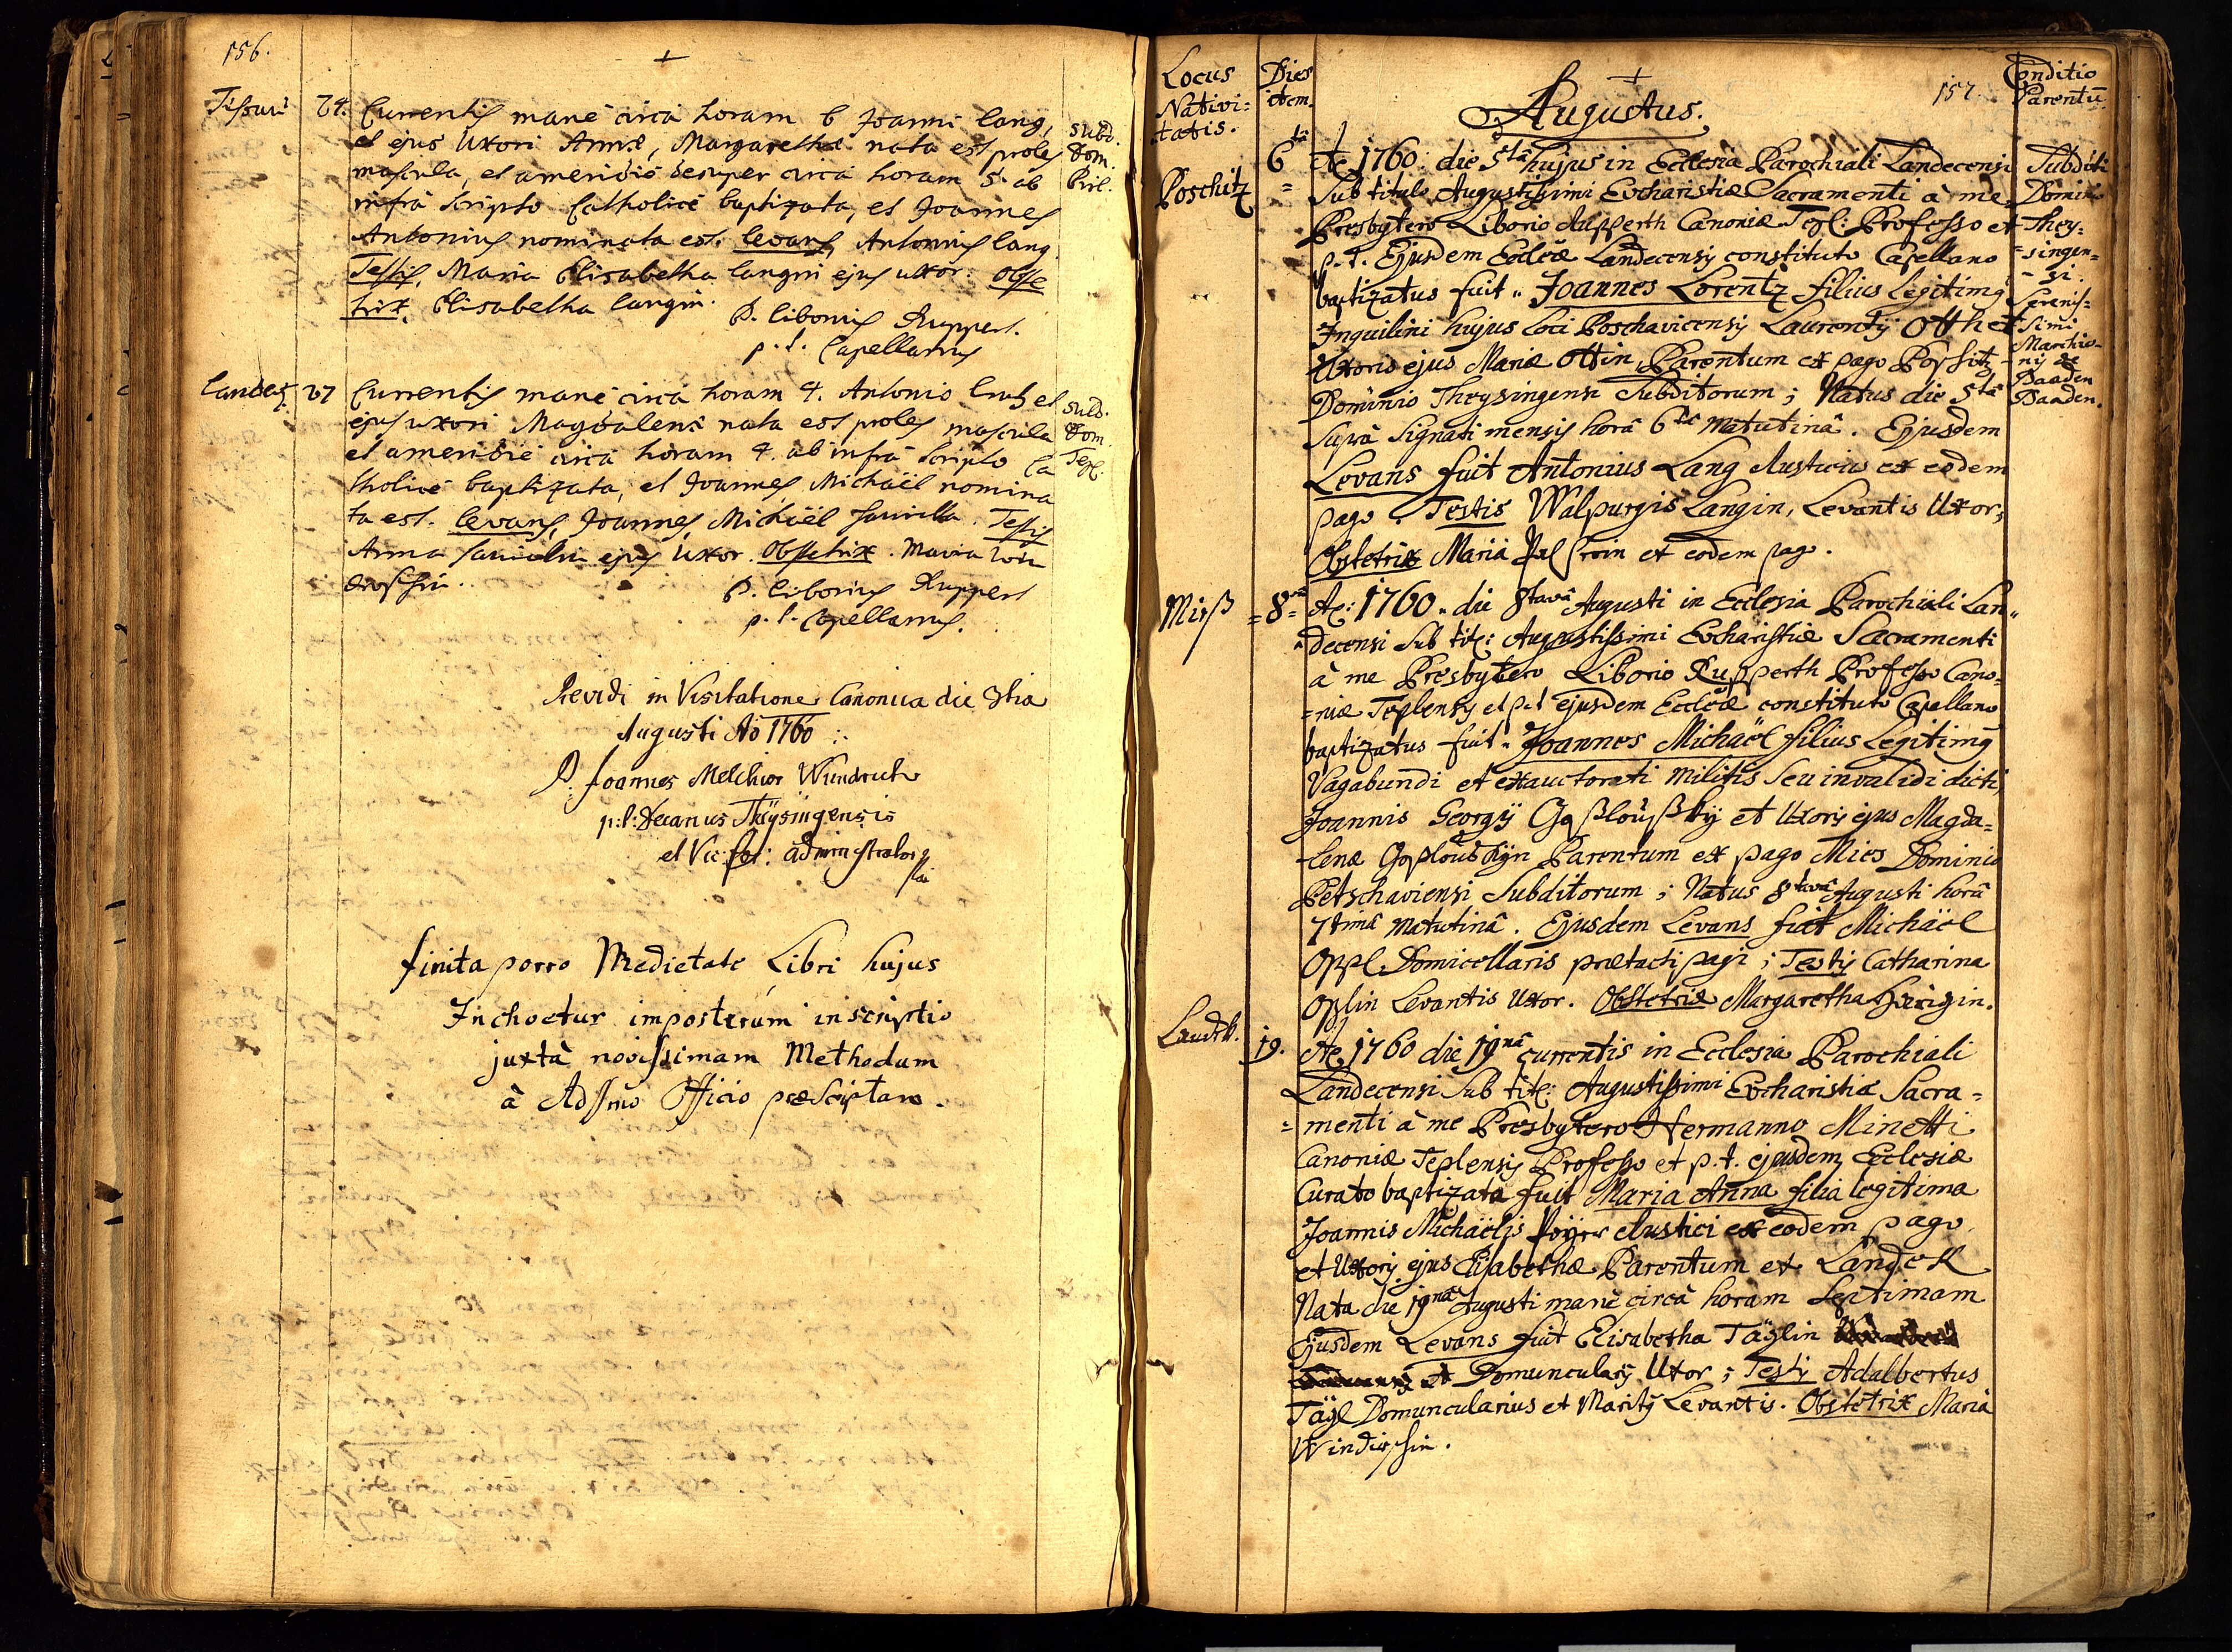 156.
+
24. Currentis mane circa horam 6 Joanni Lang,
et ejus Uxori Annæ, Margaretha nata est proles
mascula, et a meridie desuper circa horam 5. ab
infrà scripto Catholice baptizata, et Joannes
Antonius nominata est. Levans Antonius Lang
Testis, Maria Elisabetha Langin ejus uxor. Obste
trix, Elisabetha Langin.
P. Liborius Ruppert.
p. t. Capellanus
subd.
Dom.
27 Currentis mane circa horam 4. Antonio et
ejus uxori Magdalenæ nata est proles mascula
et a meridie circa horam 4. ab infrà scripto Ca
tholice baptizata, et Joannes Michaël nomina
ta est. Levans, Joannes Michaël Testis
Anna ejus Uxor. Obstetrix. Maria
P. Liborius Ruppert
p. t. Capellanus.
subd.
Dom.
Tepl:
Revidi in Visitatione Canonica die
Augusti Aõ 1760
P. Joannes Melchior
p: t: Decanus Theysingensis
et Vic: for: administrator
finita porro Medietate Libri hujus
Inchoetur imposterum inscriptio
juxtà novissimam Methodum
à Officio præscriptam.
Locus
Nativi=
tatis.
Dies
item.
+
157.
Conditio
Parentũ
Augustus.
Poschitz
6ta Aõ 1760 die 5tâ hujus in Ecclesia Parochiali Landecensi
Sub titulo Augustissimi Eucharistiæ Sacramenti à me
Presbytero Liborio Rupperth Canoniæ Tepl: Professo et
p. t. Ejusdem Ecclæ Landecensis constituto Capellano
baptizatus fuit Joannes Lorentz filius Legitimq
Inquilini hujus loci Poschavicensis Laurentij Oth et
Uxoris ejus Mariæ Ottin, Parentum ex pago Possitz,
Dominio Theysingensi Subditorum; Natus die 5tâ
Suprà Signati mensis horâ 6tâ matutinâ. Ejusdem
Levans fuit Antonius Lang Rusticus ex eodem
pago. Testis Walpurgis Langin, Levantis Uxor;
Obstetrix Maria ex eodem pago.
Subditi
Dominio
They=
=singen=
=si.
Serenis=
simi
Marchio-
nis de
Baaden
Baaden.
Mirß
=8= Aõ: 1760. die 8tavâ Augusti in Ecclesia Parochiali Lan=
decensi Sub tit: Augustissimi Eucharistiæ Sacramenti
à me Presbytero Liborio Rupperth Professo Cano=
=niæ Teplensis et p.t ejusdem Ecclæ constituto Capellano
baptizatus fuit. Joannes Michaël filius Legitimq
Vagabundi et exauctorati militis seu invalidi dicti,
Joannis Georgij et Uxoris ejus Magda=
lenæ Parentum ex pago Mies Dominio
Petschaviensi Subditorum; Natus 8tavâ Augusti horâ
7timâ matutinâ. Ejusdem Levans fuit Michaël
Oppl Domicellaris prætacti pagi; Testis Catharina
Oplin Levantis Uxor. Obstetrix Margaretha
19. Aõ 1760 die 19nâ currentis in Ecclesia Parochiali
Landecensi Sub tit: Augustissimi Eucharistiæ Sacra=
=menti à me Presbytero Hermanno Minetti
Canoniæ Teplensis Professo et p. t. ejusdem Ecclesiæ
Curato baptizata fuit Maria Anna filia legitima
Joannis Michaëlis Rustici ex eodem pago
et Uxoris ejus Elisabethæ Parentum ex Landek
Nata die 19nâ Augusti mane circà horam Septimam
Ejusdem Levans fuit Elisabetha Täglin
Domuncularij Uxor; Testis Adalbertus
Tägl Domuncularius et Maritq Levantis. Obstetrix Maria